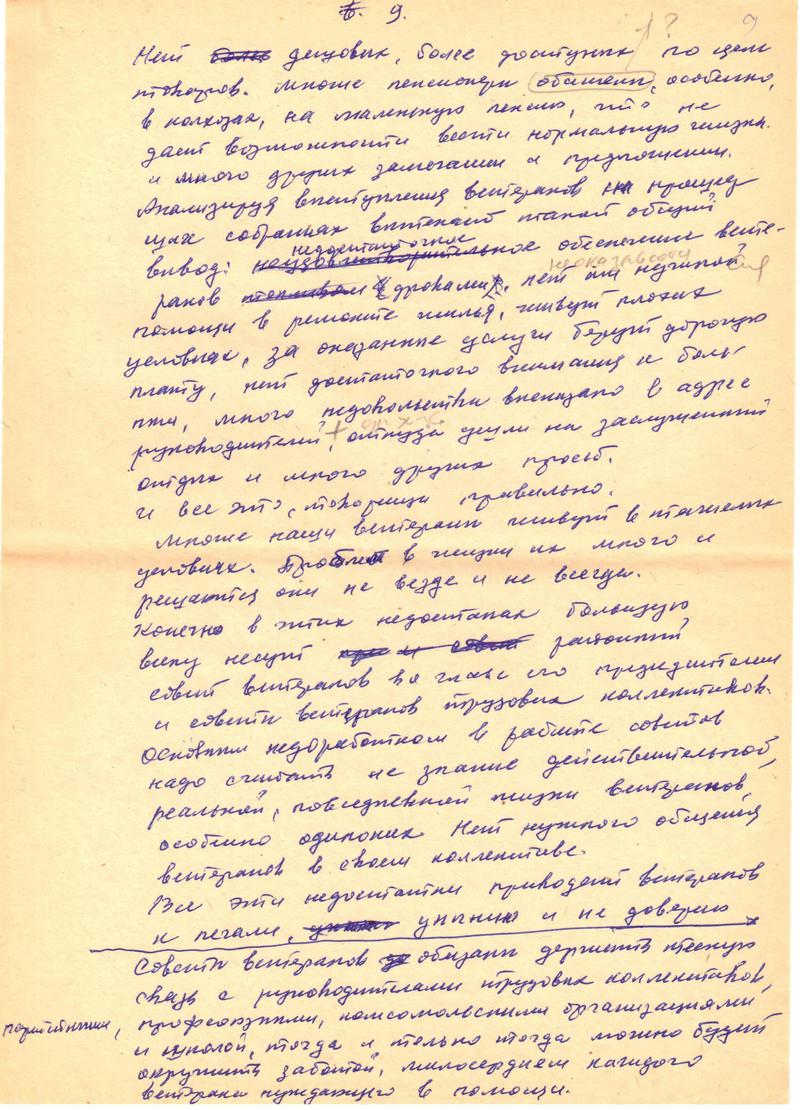 9.
9
Нет более дешовых, более доступных по цене
товаров. Многие пенсионеры обижены, особенно,
в колхозах, на маленькую пенсию, что не
дает возможности вести нормальную жизнь.
и много других замечаний и предложений.
Анализируя выступления ветеранов на прошед
ших собраниях вытекает такой общий
вывод: неудовлетворительное обеспечение вете-
недостаточное
ранов топливом дровами, нет им нужной
не оказывается
помощи в ремонте жилья, живут плохих
условиях, за оказанные услуги берут дорогую
плату, нет достаточного внимания к боль-
ным, много недовольства высказано в адрес
руководителей, откуда ушли на заслуженный
отдых и много других просьб.
И все это, товарищи правильно.
Многие наши ветераны живут в тяжелых
условиях. Проблем в жизни их много и
решаются они не везде и не всегда.
Конечно в этих недостатках большую
вину несут районный
совет ветеранов во главе его председателем
и советы ветеранов трудовых коллективов.
Основным недоработком в работе советов
надо считать не знание действительной,
реальной, повседневной жизни ветеранов,
особенно одиноких Нет нужного общения
ветеранов в своем коллективе.
Все эти недостатки приводят ветеранов
к печали, унынию и не доверию
Советы ветеранов обязаны держать тесную
связь с руководителями трудовых коллективов,
партийными, профсоюзными, комсомольскими организациями
и школой, тогда и только тогда можно будет
окружить заботой, милосердием каждого
ветерана нуждающего в помощи.